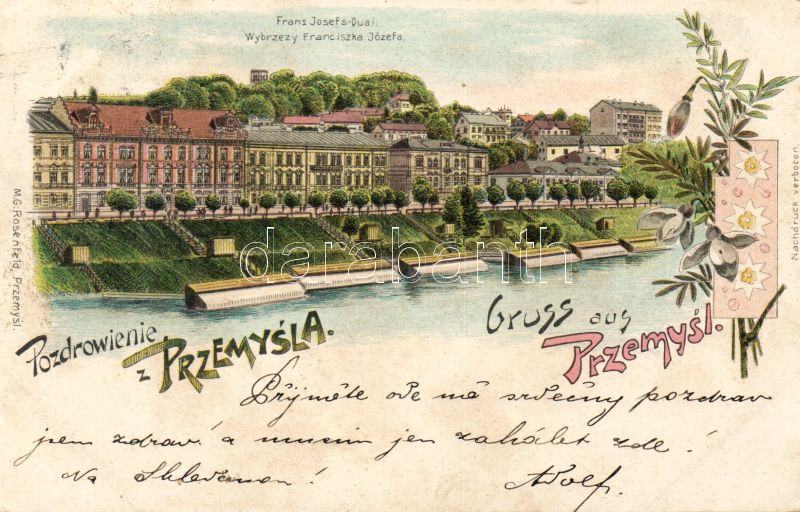 Franz Josefs-Quai.
Wybrzezy Franciszka Józefa.
M.G. Rosenfeld, Przemysl.
Nachdruck verboten.
darabanth
Pozdrowienie
z PRZEMYŚLA.
Gruss aus
Przemyśl.
Přijměte ode mě srdečný pozdrav
jsem zdráv! a musím jen zahálet zde!
Na Shledanou!
Adolf.